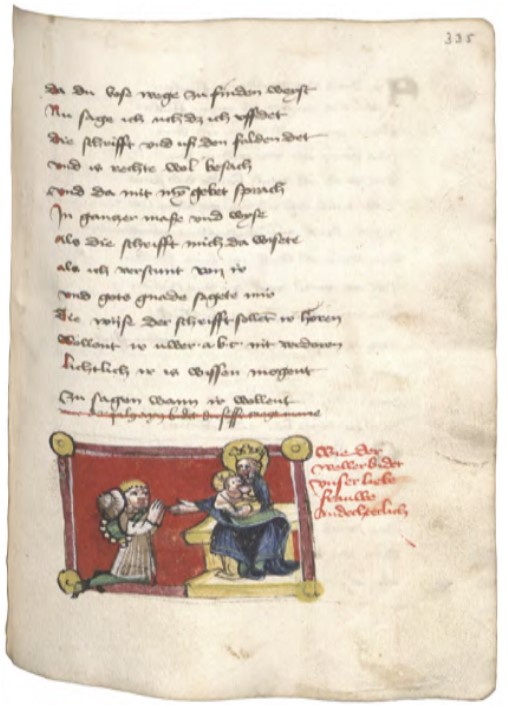 335
da du bose wege zu finden weyst
Nu sage ich uch dz ich uffdet
die schrifft und uß den falden det
und is rechte wol besach
und da mit myn gebet sprach
In gantzer maße und wyse
als die schrifft mich da wisete
als ich verstunt von ir
und gots gnade sagete mir
Die wise der schrifft sollet ir horen
wollent ir uwer a b c nit
lichtlich ir is wissen mogent
Zu sagen wann ir wollent
Wie der
weller bidet
unser liebe
frauwe